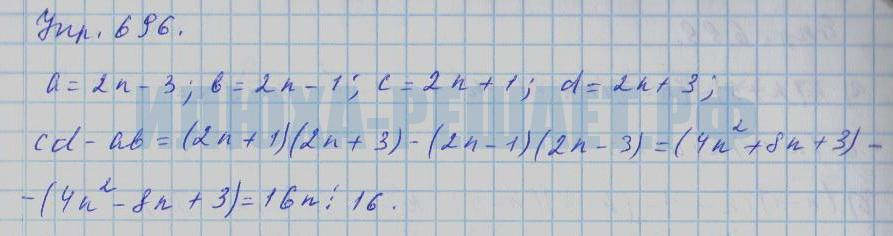 Упр. 696.
a = 2n - 3; b = 2n - 1; c = 2n + 1; d = 2n + 3;
ИЛЬНУХА-РЕШАЕТ.РФ
cd - ab = (2n + 1)(2n + 3) - (2n - 1)(2n - 3) = (4n² + 8n + 3) -
- (4n² - 8n + 3) = 16n ⋮ 16.